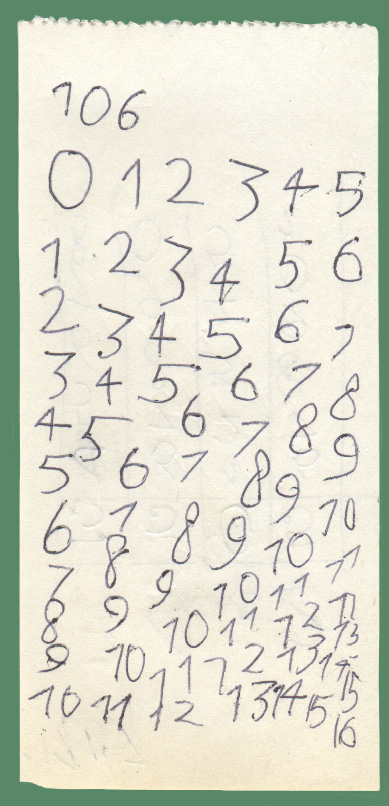 106
0 1 2 3 4 5
1 2 3 4 5 6
2 3 4 5 6 7
3 4 5 6 7 8
4 5 6 7 8 9
5 6 7 8 9 10
6 7 8 9 10 11
7 8 9 10 11
8 9 10 11 12 13
9 10 11 12 13 14
10 11 12 13 14 15 15
16